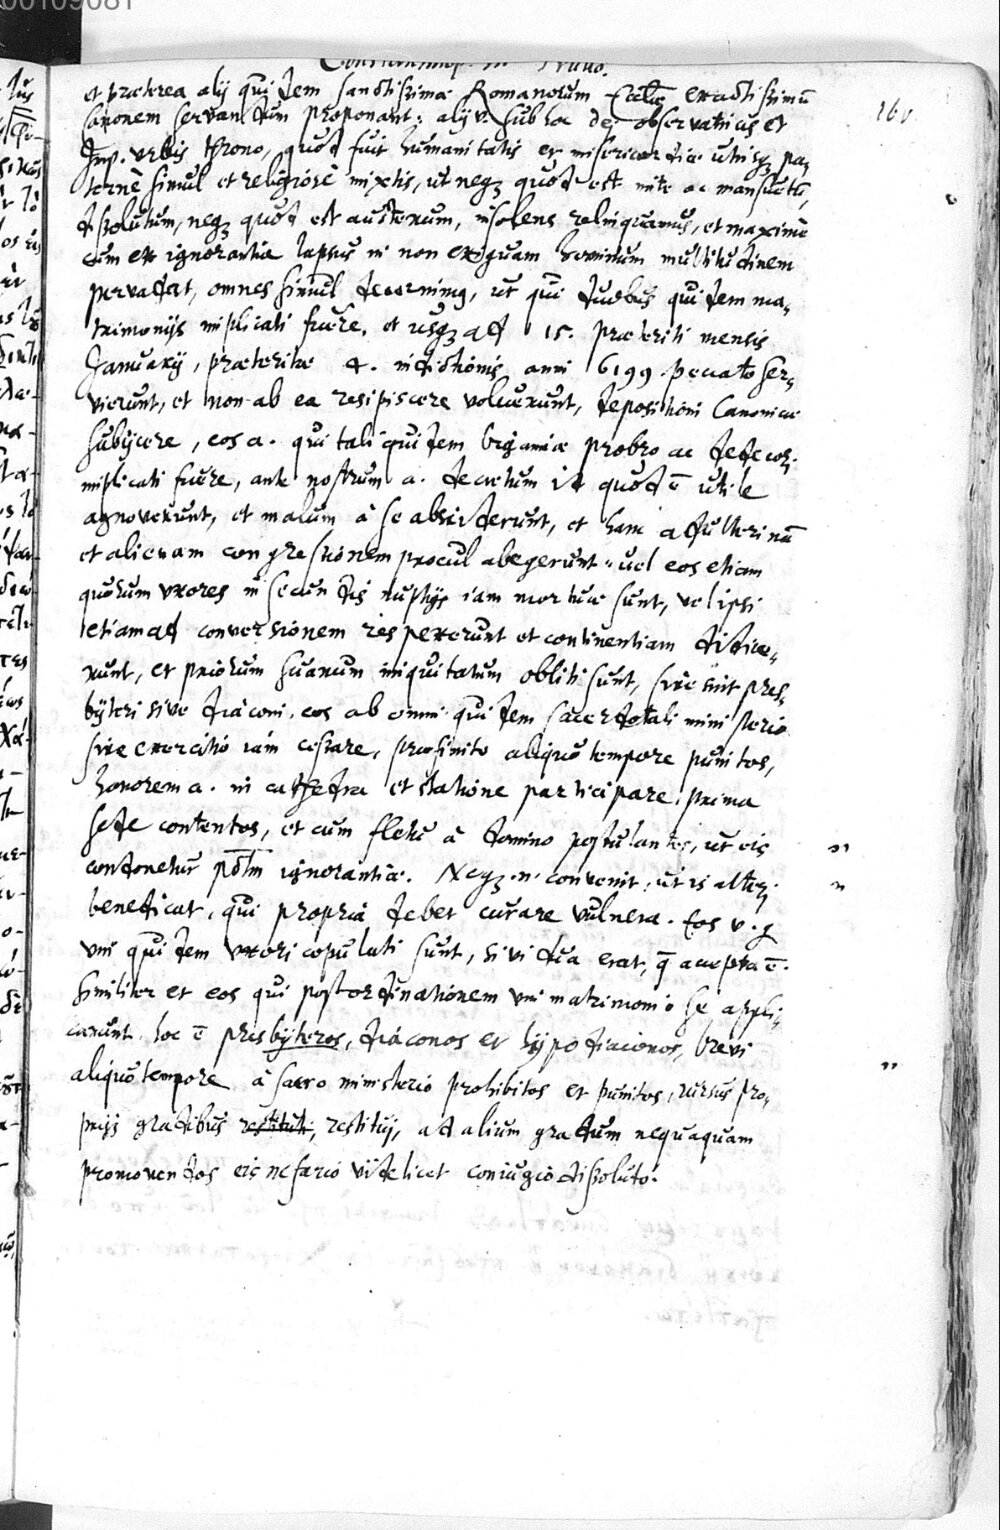 00109081
Constantinop. in Trullo.
160
et præterea alij quidem sanctissimæ Romanorum Ecclæ exactissimũ
canonem servandum proponant: alij v. sub hoc de observatricis et
Imp. urbis throno, quod fuit humanitatis et misericordiæ utrisq; pa-
ternè simul et religiosè mixtis, ut neq; quod est mite ac mansuetũ,
dissolutum, neq; quod est austerum, insolens relinquamus, et maximè
cum ex ignorantia lapsus in non exiguam hominum multitudinem
pervadat, omnes simul decernimq, ut qui duobus quidem ma-
trimonijs implicati fuêre, et usq; ad 15. præteriti mensis
Januarij, præteritæ 4. indictionis anni 6199. peccato ser-
vierunt, et non ab ea resipiscere voluerunt, depositioni Canonicæ
subijcere, eos a. qui tali quidem bigamiæ probro ac dedecori
implicati fuêre, ante nostrum a. decretum id quod ẽ utile
agnoverunt, et malum à se absciderunt, et hanc adulterinã
et alienam congressionem procul abegerunt: uel eos etiam
quorum uxores in secundis nuptijs iam mortuæ sunt, vel ipsi
etiam ad conversionem respexerunt et continentiam didice-
runt, et priorum suarum iniquitatum obliti sunt, sive sint pres-
byteri sive diaconi, eos ab omni quidem sacerdotali ministerio
sive exercitio iam cessare, præfinito aliquo tempore punitos,
honorem a. in cathedra et statione participare, prima
sede contentos, et cum fletu à domino postulantes, ut eis
condonetur pctm ignorantiæ. Neq; n. convenit, ut is alteri
benedicat, qui propria debet curare vulnera. Eos v. q
uni quidem uxori copulati sunt, si vidua erat, q̃ accepta ẽ.
similiter et eos qui post ordinationem uni matrimonio se appli-
carunt, hoc ẽ presbyteros, diaconos et hypodiaconos, brevi
aliquo tempore à sacro ministerio prohibitos et punitos, rursus pro-
prijs gradibus restituti, restitui, ad alium gradum nequaquam
promovendos eis nefario videlicet coniugio dissoluto.